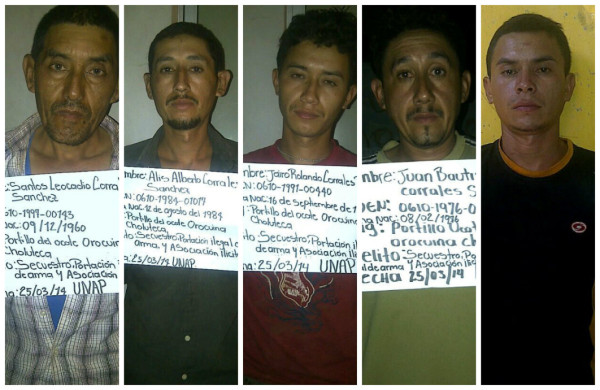 :Santos Leocadio Corra
Sanchez
0610-1997-00143
nac: 09/12/1960
Portillo del ocote Orocuina
Choluteca
to: Secuestro, Portación
de arma y Asociación
a: 25/03/14 UNAP
mbre: Alis Alberto Corrales
Sanchez
N: 0610-1984-01017
Nac: 12 de agosto del 1984
: Portillo del ocote Orocuina
Choluteca
ito: Secuestro, Portación ilegal
de arma y Asociación ilicit
a: 25/03/14 UNAP
nbre: Jairo Rolando Corrales
N: 0610-1991-00440
a Nac: 16 de septiembre de 1
: Portillo del ocote Orocuina
Choluteca
lito: Secuestro, Portación il
de arma y Asociación ilic
na: 25/03/14 UNAP
nbre: Juan Bauti
corrales S
DEN: 0610-1976-0
a Nac: 08/02/1976
g: Portillo Ocot
orocuina ch
elito: Secuestro, Po
al de arma y Asociación ilic
ECHA 25/03/14